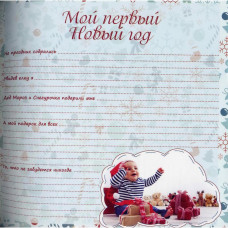 Мой первый
Новый год
На праздник собрались
Мывел ёлку в
Дед Мороз и Снегурочка подарили мне
А мой подарок для всех
То, что не забудется никогда